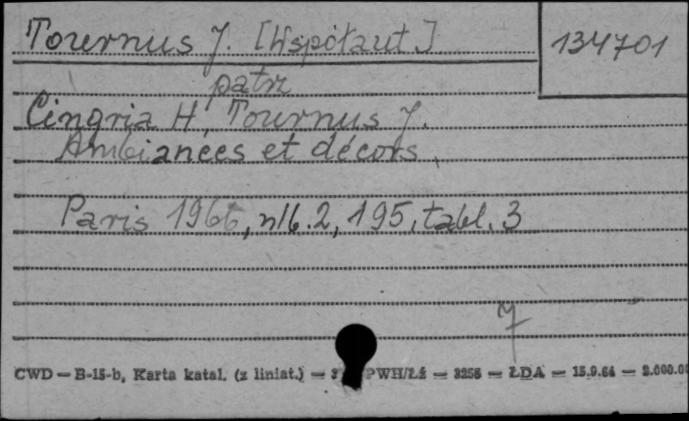 Tournus J. [Współaut.] 134701
patrz
Cingria H, Tournus J.
Ambiances et décors.
Paris 1966, nlb. 2, 195, tabl. 3
7
CWD — B-15-b, Karta katal. (z liniat.) — PWH/Łź — 3256 — ŁDA — 15.9.64 —